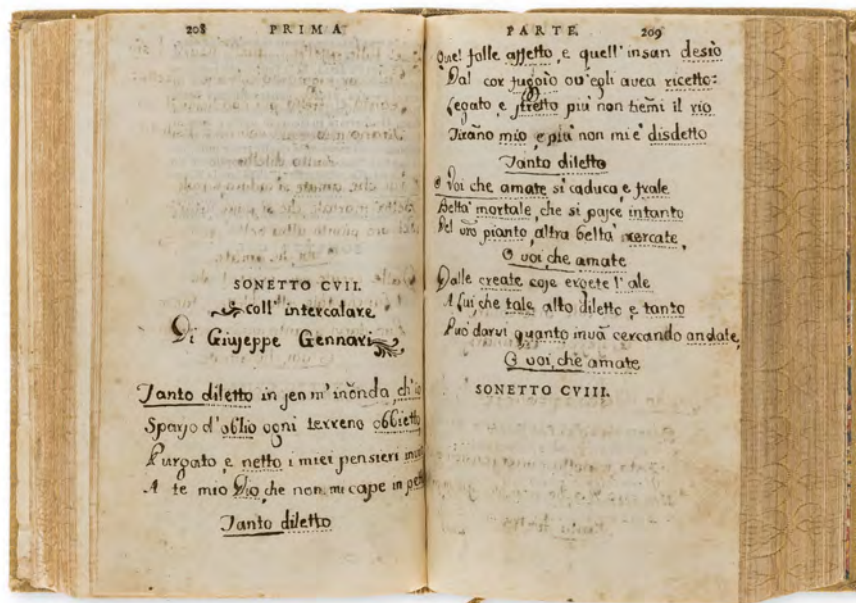 208 PRIMA
SONETTO CVII.
coll' intercalare
Di Giuseppe Gennari
Tanto diletto in sen m' inonda, ch'io
Sparso d'oblio ogni terreno obbietto,
Purgato, e netto i miei pensieri
A te mio Dio, che non mi cape in
Tanto diletto
PARTE. 209
Quel folle affetto, e quell' insan desio
Dal cor fuggio ov' egli avea ricetto:
Legato e stretto più non tiemi il rio
Tirāno mio, e più non mi e' disdetto
Tanto diletto
O voi che amate si caduca, e frale
Belta' mortale, che si pasce intanto
Del vrō pianto, altra belta' mercate,
O voi, che amate
Dalle create cose ergete l' ale
A lui, che tale alto diletto e tanto
Puo' darvi quanto invā cercando andate,
O voi, che amate
SONETTO CVIII.